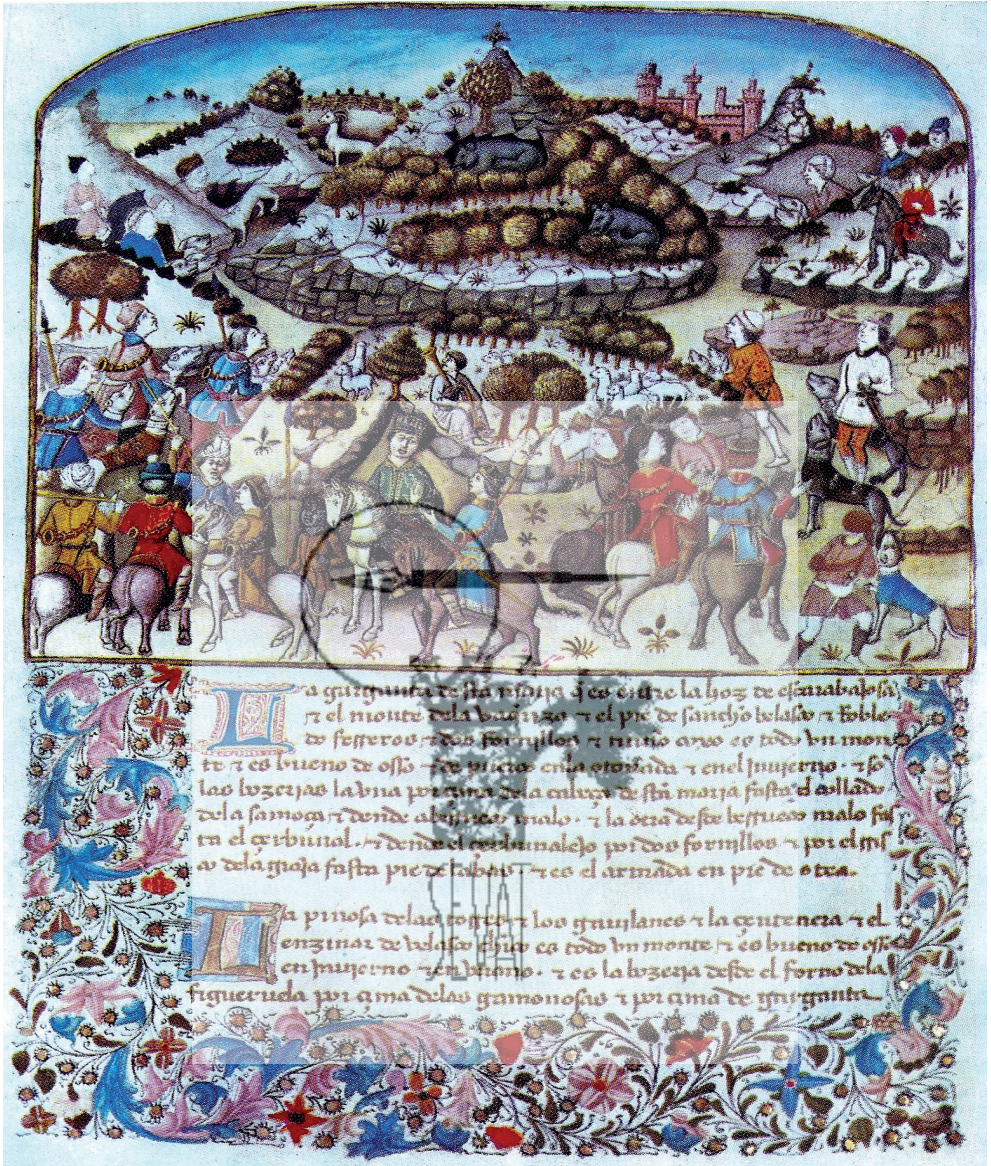 La garganta de sta maria q es entre la hoz de escarabajosa
τ el monte dela τ el pie de sancho velasco τ Roble
do fesseros τ dos fornillos τ todo vn mon
te τ es bueno de osso τ de puerco en la otonada τ enel jnujerno. τ so
las bozerias la vna por çima dela cabeça de sta maria fasta el collado
dela τ dende a malo. τ la otra deste berrueco malo fas
ta el . τ dende el por dos fornillos τ por el
dela fasta pie de τ es el armada en pie de otra.
La pinosa delas τ los gauilanes τ la çentenera τ el
enzinar de velasco chico es todo vn monte τ es bueno de osso
en jnujerno τ en . τ es la bozeria desde el forno dela
figueruela por çima delas gamonosas τ por çima de garganta
SEVAT